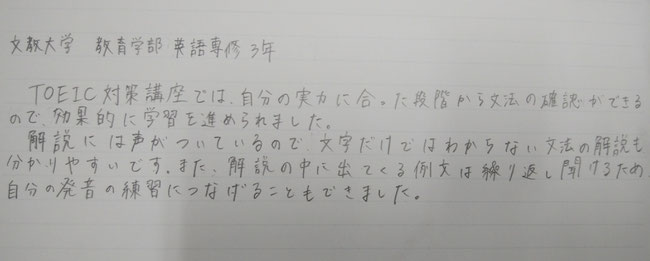 文教大学 教育学部 英語専修 3年
TOEIC対策講座では、自分の実力に合った段階から文法の確認ができる
ので、効果的に学習を進められました。
解説には声がついているので、文字だけではわからない文法の解説も
分かりやすいです。また、解説の中に出てくる例文は繰り返し聞けるため、
自分の発音の練習につなげることもできました。